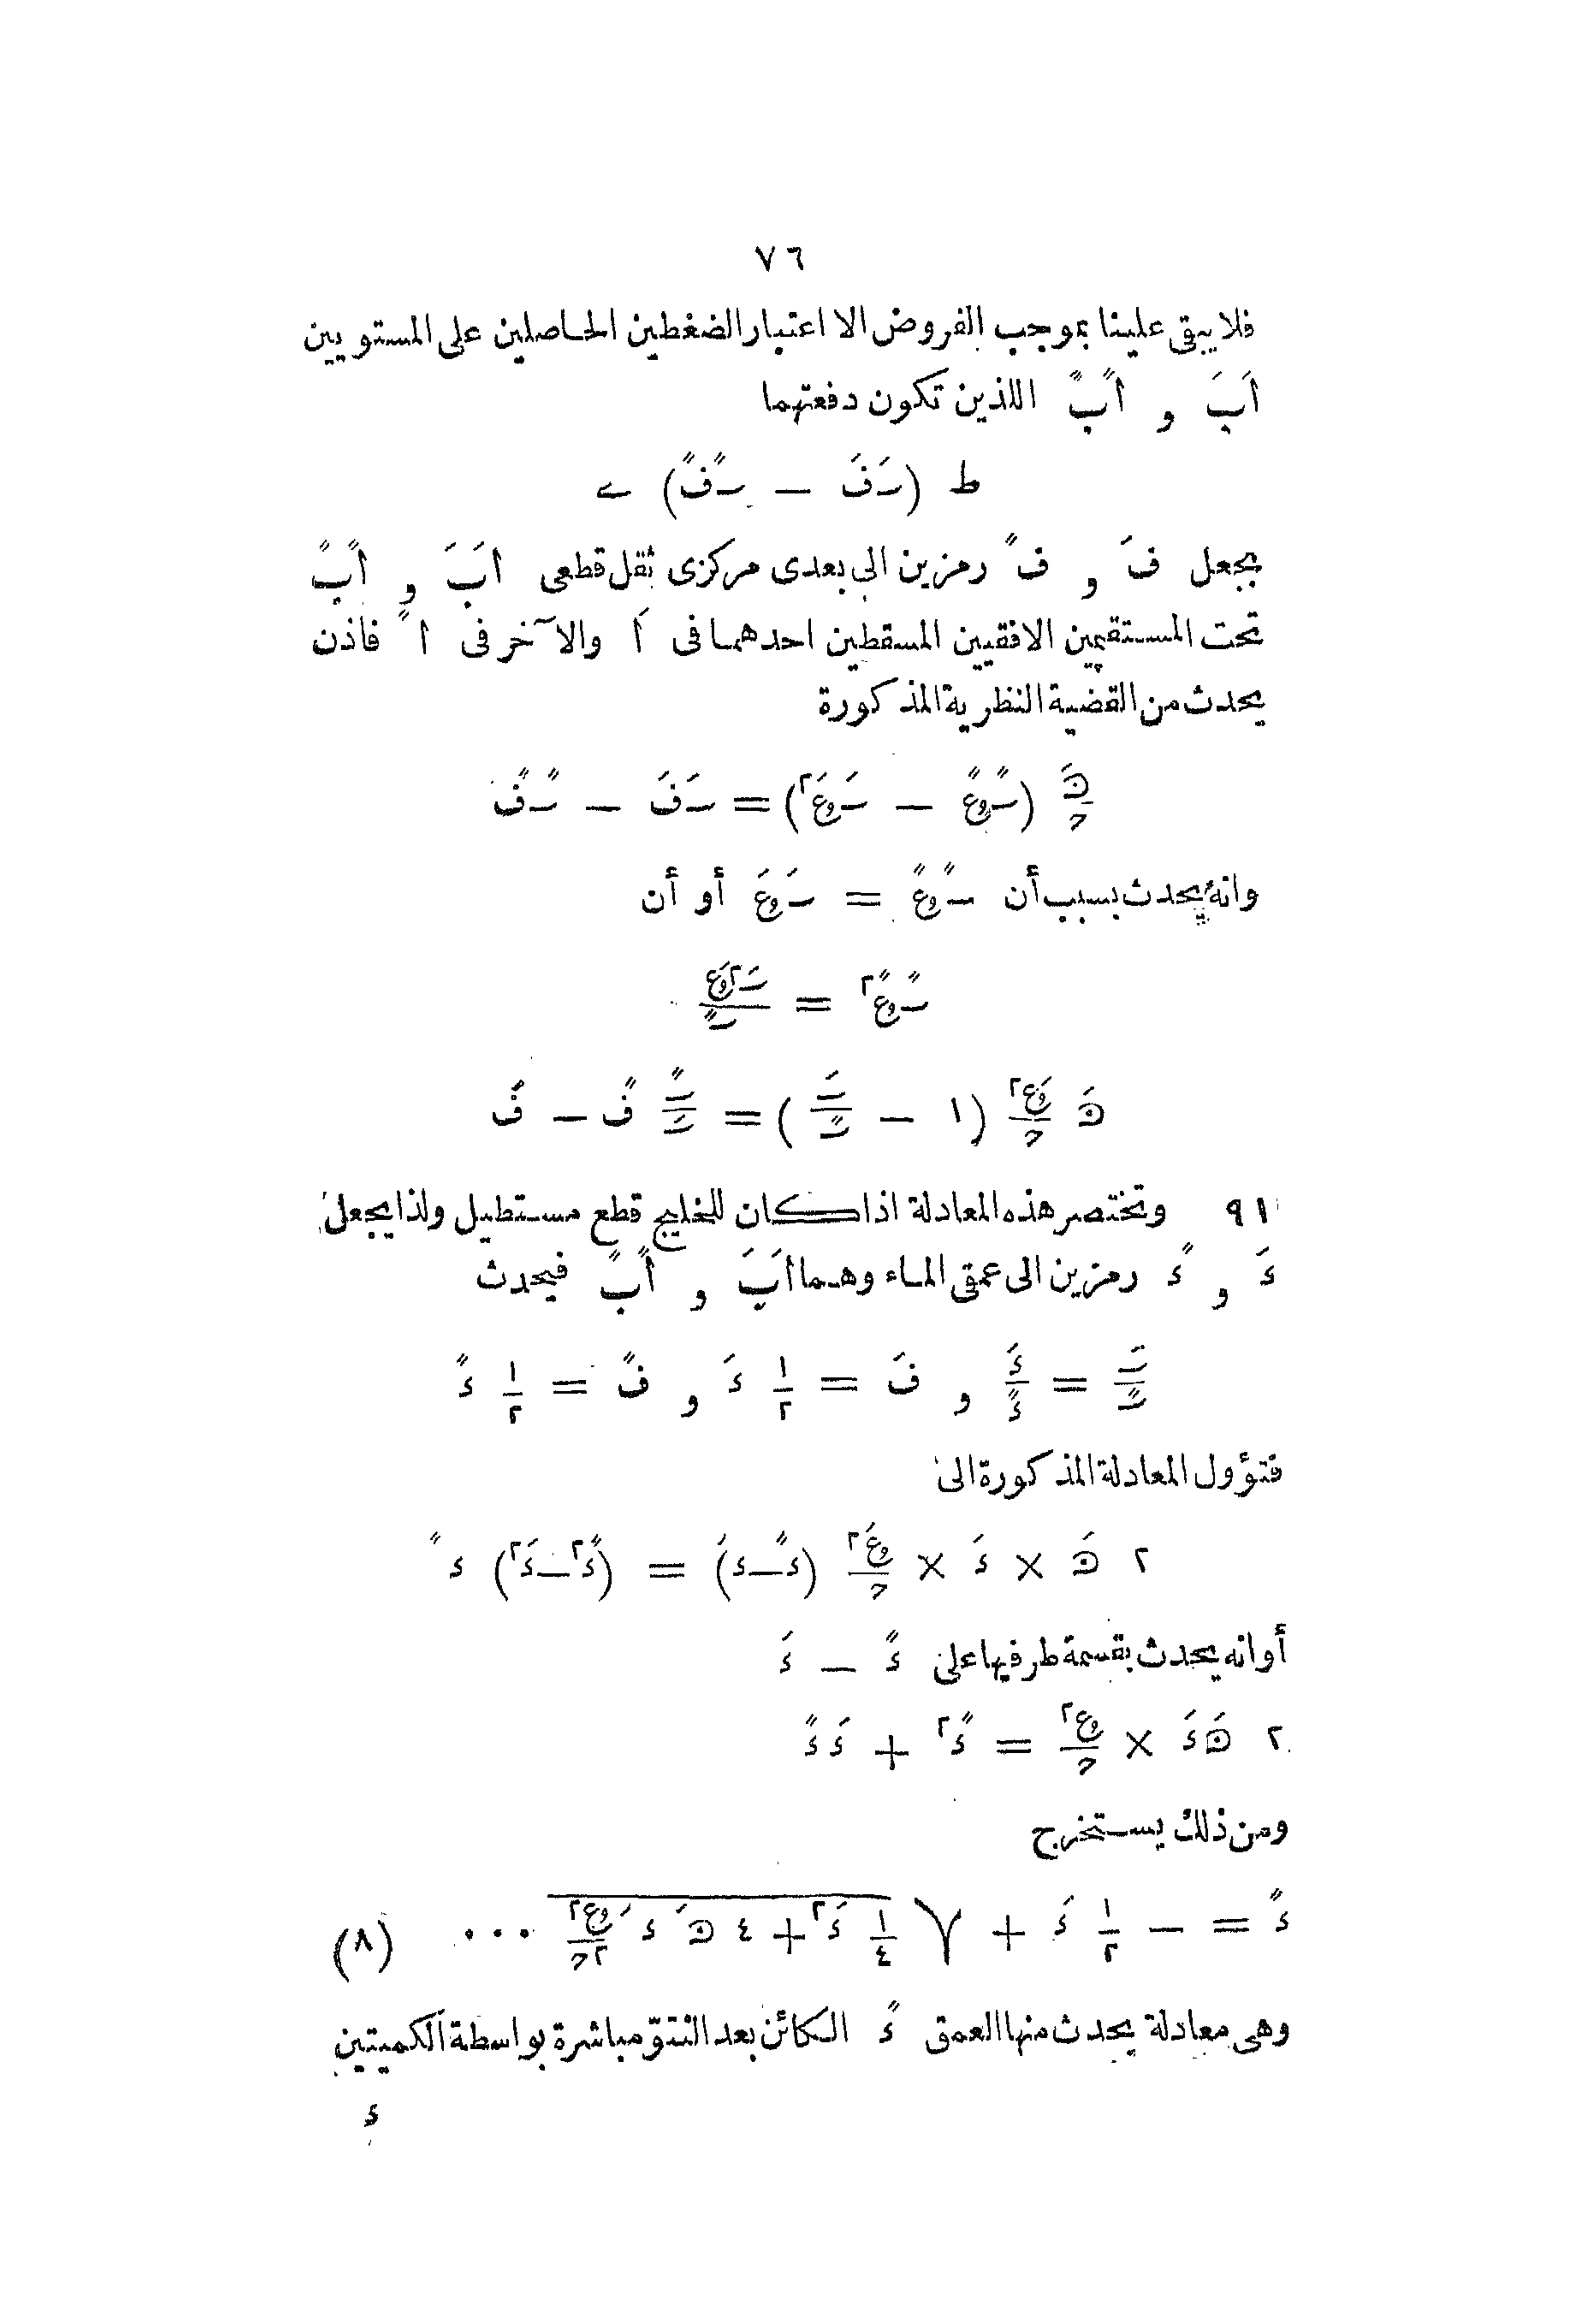 ٧٦
فلا يبقى علينا بموجب الفروض الا اعتبار الضغطين الحاصلين على المستويين
اَبَ و اًبً اللذين تكون دفعتهما
ط (سَفَ — سًفً) ے
بجعل فَ و فً رمزين الى بعدى مركزى ثقل قطعى اَبَ و اًبً
تحت المستقيمين الافقيين المسقطين احدهما فى اَ والآخر فى اً فاذن
يحدث من القضية النظرية المذكورة
(سًوعً — سَوعَ٢) = سَفَ — سًفً
وانه يحدث بسبب أن سًوعً = سَوعَ أو أن
سًوعً٢ = سَ٢وعَ / سً
(١ — سَ/سً) = سً/سَ فً — فَ
٩١ وتختصر هذه المعادلة اذا كان للخليج قطع مستطيل ولذا يجعل
ءَ و ءً رمزين الى عمقى الماء وهما اَبَ و اًبً فيحدث
سَ/سً = ءَ/ءً و فَ = ١/٢ ءَ و فً = ١/٢ ءً
فتؤول المعادلة المذكورة الى
٢ هَ × ءَ × وعَ٢/ح (ءً—ءَ) = (ءً٢—ءَ٢) ءً
أو انه يحدث بقسمة طرفيها على ءً — ءَ
٢ هَءَ × وعَ٢/ح = ءً٢ + ءَءً
ومن ذلك يستخرج
ءً = — ١/٢ ءَ + √ ١/٤ ءَ٢ + ٤ هَ ءَ وعَ٢/٢ح ... (٨)
وهى معادلة يحدث منها العمق ءً الكائن بعد النتوّ مباشرة بواسطة الكميتين
ءَ